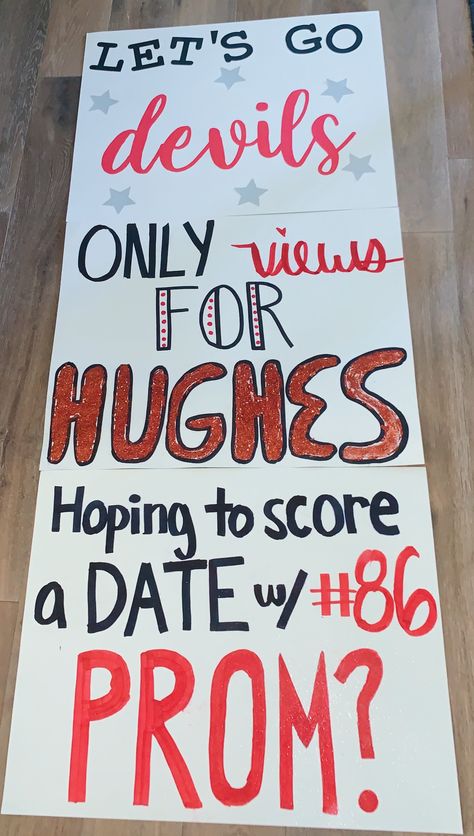 LET'S GO
devils
ONLY views
FOR
HUGHES
Hoping to score
a DATE w/ #86
PROM?